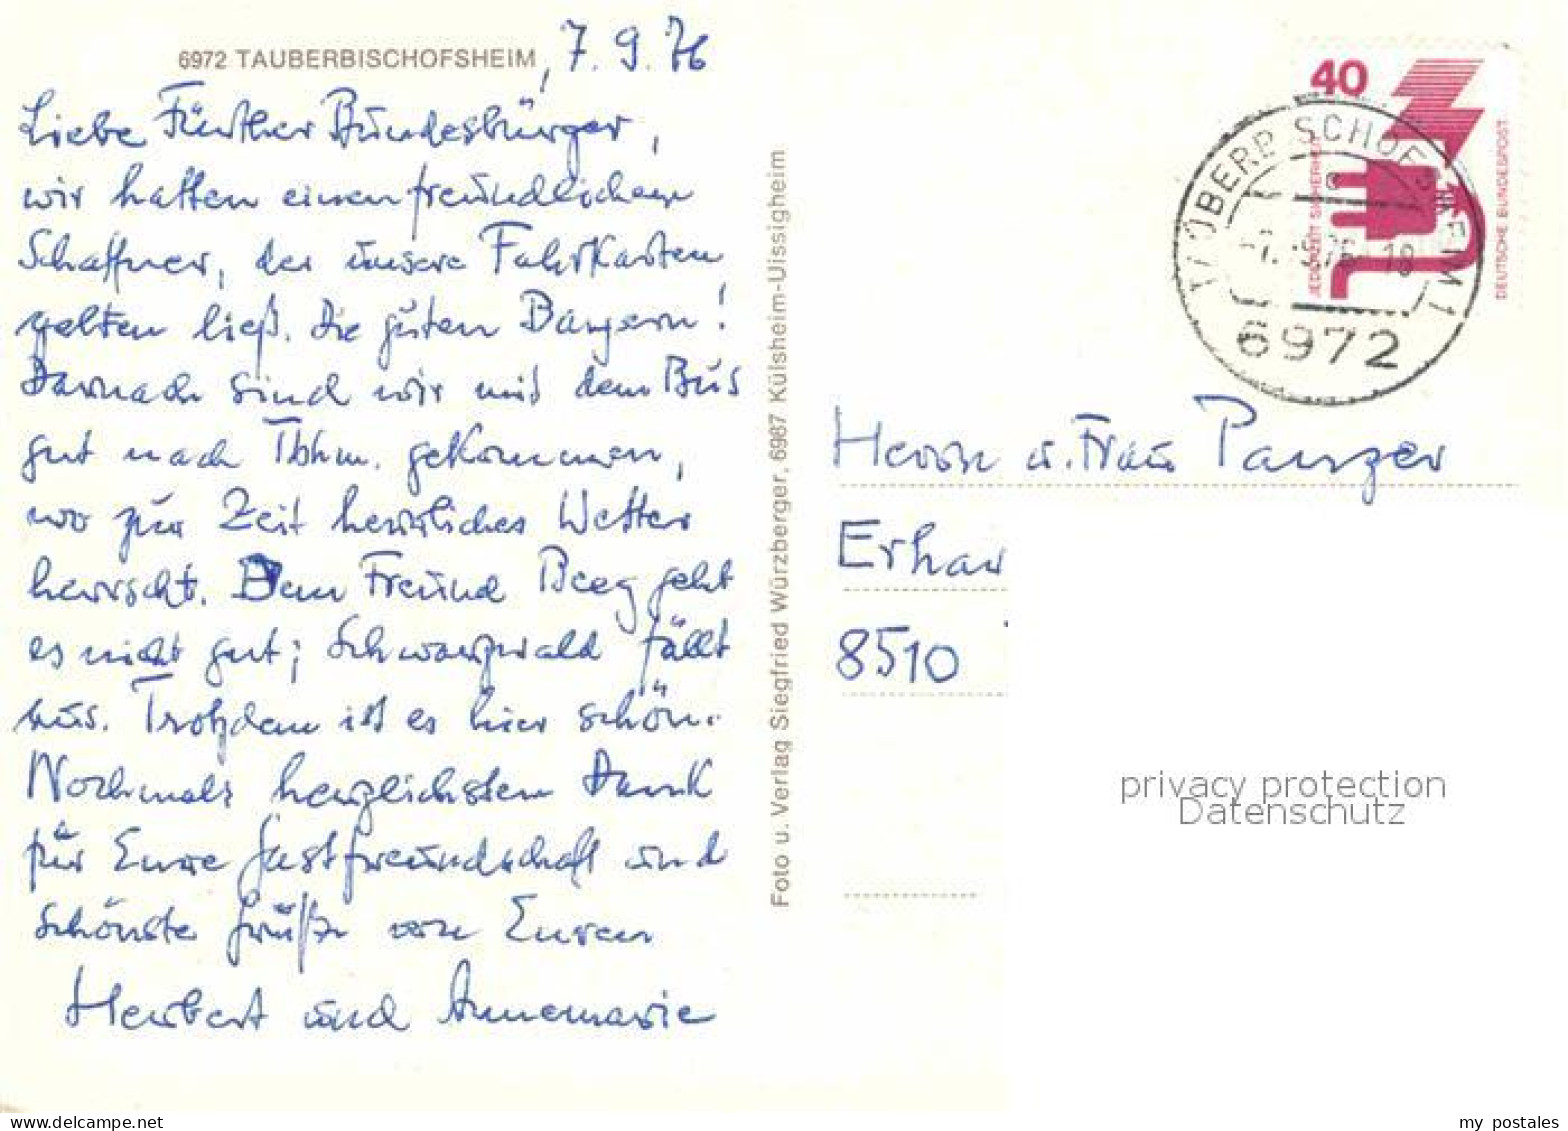 6972 TAUBERBISCHOFSHEIM, 7.9.76
Liebe Fürther Bundesbürger,
wir hatten einen freundlichen
Schaffner, der unsere Fahrkarten
gelten ließ. Die guten Bayern!
Darnach sind wir mit dem Bus
gut nach Tbhm. gekommen,
wo zur Zeit herrliches Wetter
herrscht. Dem Freund Beeg geht
es nicht gut; Schwarzwald fällt
aus. Trotzdem ist es hier schön.
Nochmals herzlichsten Dank
für Eure Gastfreundschaft und
schönste Grüße von Euren
Herbert und Annemarie
Foto u. Verlag Siegfried Würzberger, 6987 Külsheim-Uissigheim
40
JEDERZEIT SICHERHEIT
DEUTSCHE BUNDESPOST
TAUBERBISCHOFSHEIM 1
-7.-9.76-18
6972
Herrn u. Frau Panzer
Erhar
8510
privacy protection
Datenschutz
my postales